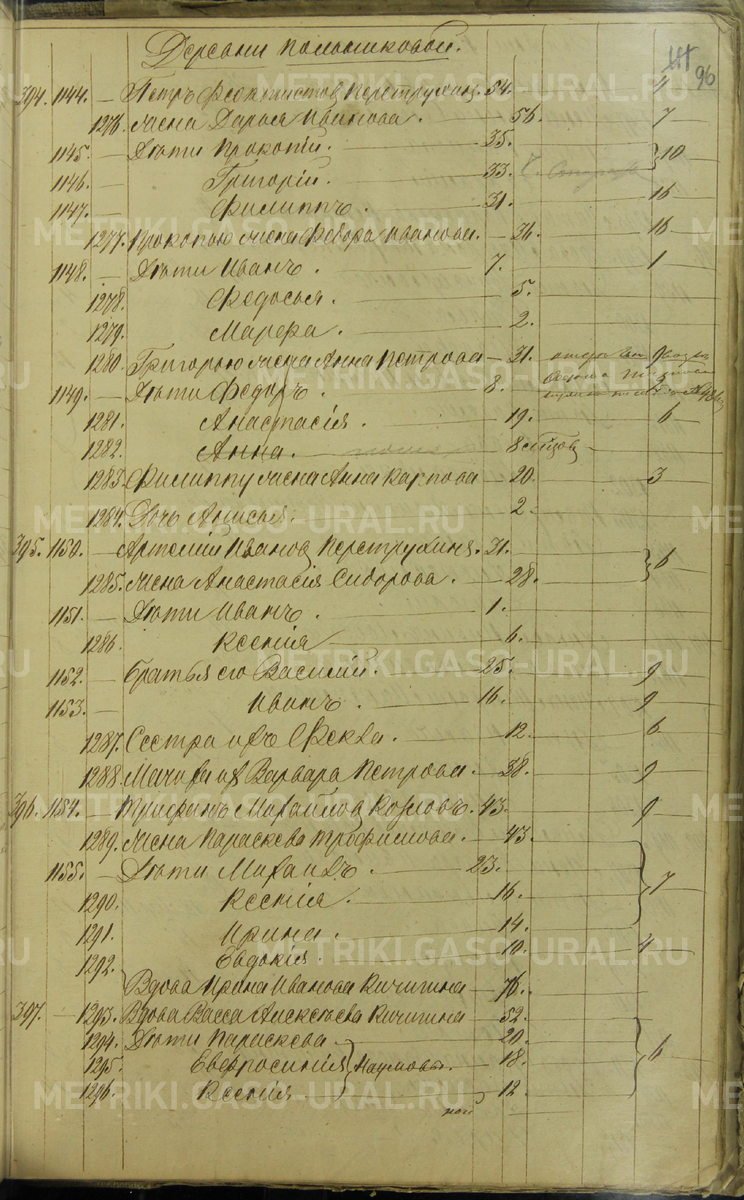 96
394. 1144. Петръ Феоктистовъ Перетрухинъ. 54. 7
1276. жена Дарья Иванова. 56. 7
1145. Дѣти Прокопiй. 35.
1146. Григорiй. 33. 10
1147. Филиппъ. 31. 16
1277. Прокопью жена Федора Иванова. 36. 16
1148. Дѣти Иванъ. 7. 1
1278. Федосья. 5.
1279. Марфа. 2.
1280. Григорью жена Анна Петрова 31. 9
1149. Дѣти Федоръ. 8.
1281. Анастасiя. 19. 6
1282. Анна. 8
1283. Филиппу жена Анна Карпова 20. 3
1284. Дочь Анисья. 2.
395. 1150. Артемiй Иванов Перетрухинъ. 31. 6
1285. жена Анастасiя Сидорова. 28.
1151. Дѣти Иванъ. 1.
1286. Ксенiя 6.
1152. братья его Василiй. 25. 9
1153. Иванъ. 16. 9
1287. Сестра ихъ Фекла. 12. 6
1288. Мачиха их Варвара Петрова. 38. 9
396. 1154. Трифонъ Михайлов Козловъ. 43. 9
1289. жена Параскева Трофимова. 43.
1155. Дѣти Михаилъ. 23.
1290. Ксенiя. 16. 7
1291. Ирина. 14.
1292. Евдокiя. 10. 4
Вдова Ирина Иванова Кичигина 76.
397. 1293. Вдова Васса Алексѣева Кичигина 52.
1294. Дѣти Параскева. 20.
1295. Евфросинiя Наумовы. 18. 6
1296. Ксенiя. 12.
METRIKI.GASO-URAL.RU